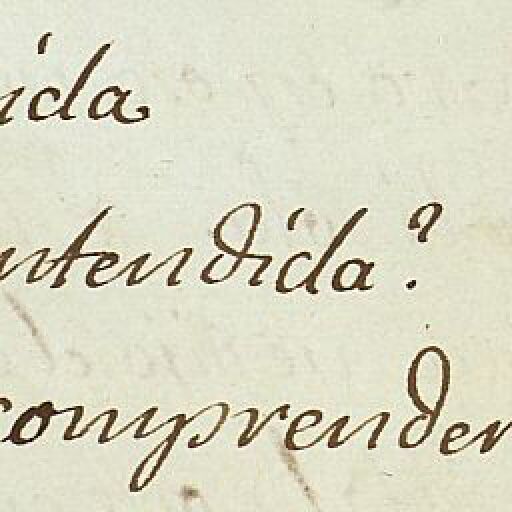 ida
ntendida?
comprender